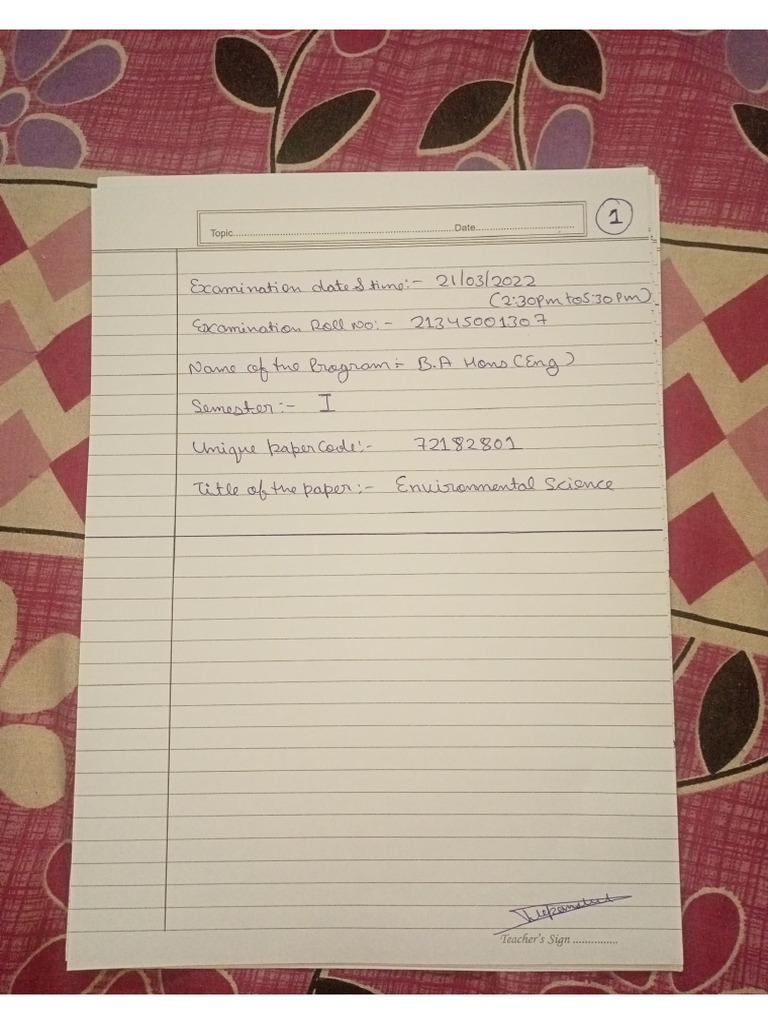 1
Topic.......................................................................Date................................
Examination date & time:- 21/03/2022
(2:30pm to 5:30pm)
Examination Roll No:- 21345001307
Name of the Program:- B.A Hons (Eng)
Semester:- I
Unique paper Code:- 72182801
Title of the paper:- Environmental Science
Teacher's Sign ...............